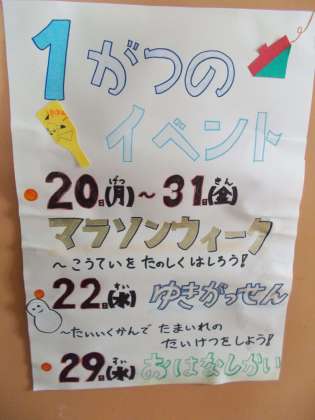 1がつの
イベント
20日(月)～31日(金)
マラソンウィーク
～こうていを たのしく はしろう!
22日(水) ゆきがっせん
～たいいくかんで たまいれの
たいけつをしよう!
29日(水) おはなしかい